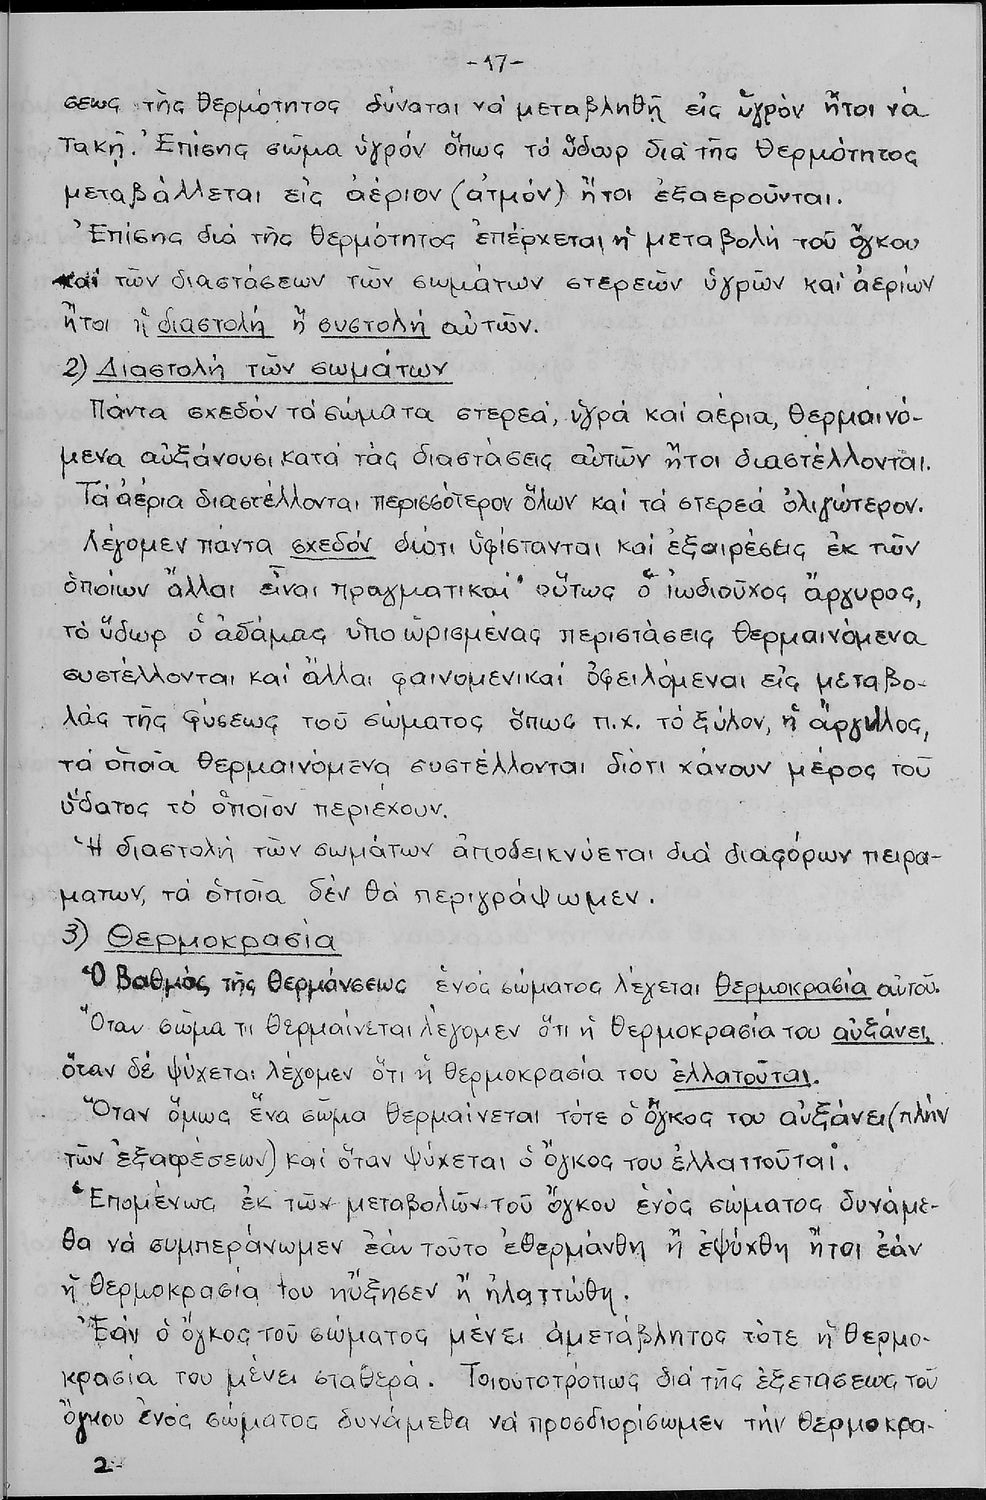 -17-
σεως τῆς θερμότητος δύναται νά μεταβληθῇ εἰς ὑγρόν ἤτοι νά
τακῇ. Ἐπίσης σῶμα ὑγρόν ὅπως τό ὕδωρ διά τῆς θερμότητος
μεταβάλλεται εἰς ἀέριον (ἀτμόν) ἤτοι ἐξαεροῦνται.
Ἐπίσης διά τῆς θερμότητος ἐπέρχεται ἡ μεταβολή τοῦ ὄγκου
καί τῶν διαστάσεων τῶν σωμάτων στερεῶν ὑγρῶν καί ἀερίων
ἤτοι ἡ διαστολή ἤ συστολή αὐτῶν.
2) Διαστολή τῶν σωμάτων
Πάντα σχεδόν τά σώματα στερεά, ὑγρά καί αέρια, θερμαινό-
μενα αὐξάνουσι κατά τάς διαστάσεις αὐτῶν ἤτοι διαστέλλονται.
Τά ἀέρια διαστέλλονται περισσότερον ὅλων καί τά στερεά ὀλιγώτερον.
Λέγομεν πάντα σχεδόν διότι ὑφίστανται καί ἐξαιρέσεις ἐκ τῶν
ὁποίων ἄλλαι εἶναι πραγματικαί· οὕτως ὁ ἰωδιοῦχος ἄργυρος,
τό ὕδωρ ὁ ἀδάμας ὑπο ὡρισμένας περιστάσεις θερμαινόμενα
συστέλλονται καί ἄλλαι φαινομενικαί ὀφειλόμεναι εἰς μεταβο-
λάς τῆς φύσεως τοῦ σώματος ὅπως π.χ. τό ξύλον, ἡ ἄργιλλος,
τά ὁποῖα θερμαινόμενα συστέλλονται διότι χάνουν μέρος τοῦ
ὕδατος τό ὁποῖον περιέχουν.
Ἡ διαστολή τῶν σωμάτων ἀποδεικνύεται διά διαφόρων πειρα-
ματων, τά ὁποῖα δέν θά περιγράψωμεν.
3) Θερμοκρασία
Ὁ βαθμός τῆς θερμάνσεως ἑνός σώματος λέγεται θερμοκρασία αὐτοῦ.
Ὅταν σῶμα τι θερμαίνεται λέγομεν ὅτι ἡ θερμοκρασία του αὐξάνει,
ὅταν δέ ψύχεται λέγομεν ὅτι ἡ θερμοκρασία του ἐλλατοῦται.
Ὅταν ὅμως ἕνα σῶμα θερμαίνεται τότε ὁ ὄγκος του αὐξάνει (πλήν
τῶν ἐξαιρέσεων) καί ὅταν ψύχεται ὁ ὄγκος του ἐλλαττοῦται.
Ἑπομένως ἐκ τῶν μεταβολῶν τοῦ ὄγκου ἑνός σώματος δυνάμε-
θα νά συμπεράνωμεν ἐάν τοῦτο ἐθερμάνθη ἤ ἐψύχθη ἤτοι ἐάν
ἡ θερμοκρασία του ηὔξησεν ἤ ἠλαττώθη.
Ἐάν ὁ ὄγκος τοῦ σώματος μένει ἀμετάβλητος τότε ἡ θερμο-
κρασία του μένει σταθερά. Τοιουτοτρόπως διά τῆς ἐξετάσεως τοῦ
ὄγκου ἑνός σώματος δυνάμεθα νά προσδιορίσωμεν τήν θερμοκρα-
2-